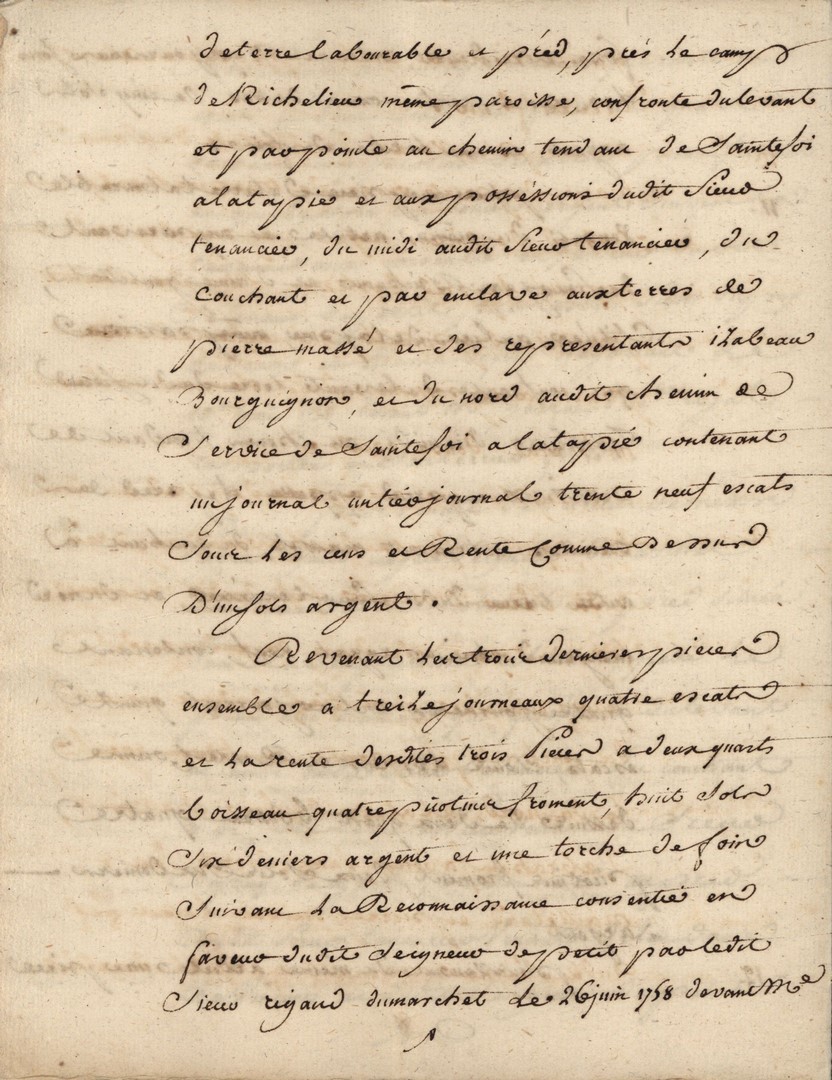 de terre labourable et préd, prés le camp
de Richelieu même paroisse, confronte du levant
et par pointe au chemin tendant de Saintefoi
a latapie et aux posséssions dudit Sieur
tenancier, du midi audit Sieur tenancier, du
Couchant et par enclave aux terres de
pierre massé et des representants izabeau
Bourguignon, et du nord audit chemin de
Service de Saintefoi a latapié contenant
un journal un tier journal trente neuf escats
Sous les cens et Rente Comme Dessus
D'un sols argent.
Revenant les trois dernieres pieces
ensemble a treize journeaux quatre escats
et la rente desdites trois Pieces a deux quarts
boisseau quatre picotins froment, huit Sols
Six deniers argent et une torche de foin
Suivant la Reconnaissance consentie en
faveur dudit Seigneur de petit par ledit
Sieur rigaud dumarchet le 26 juin 1758 devant Me